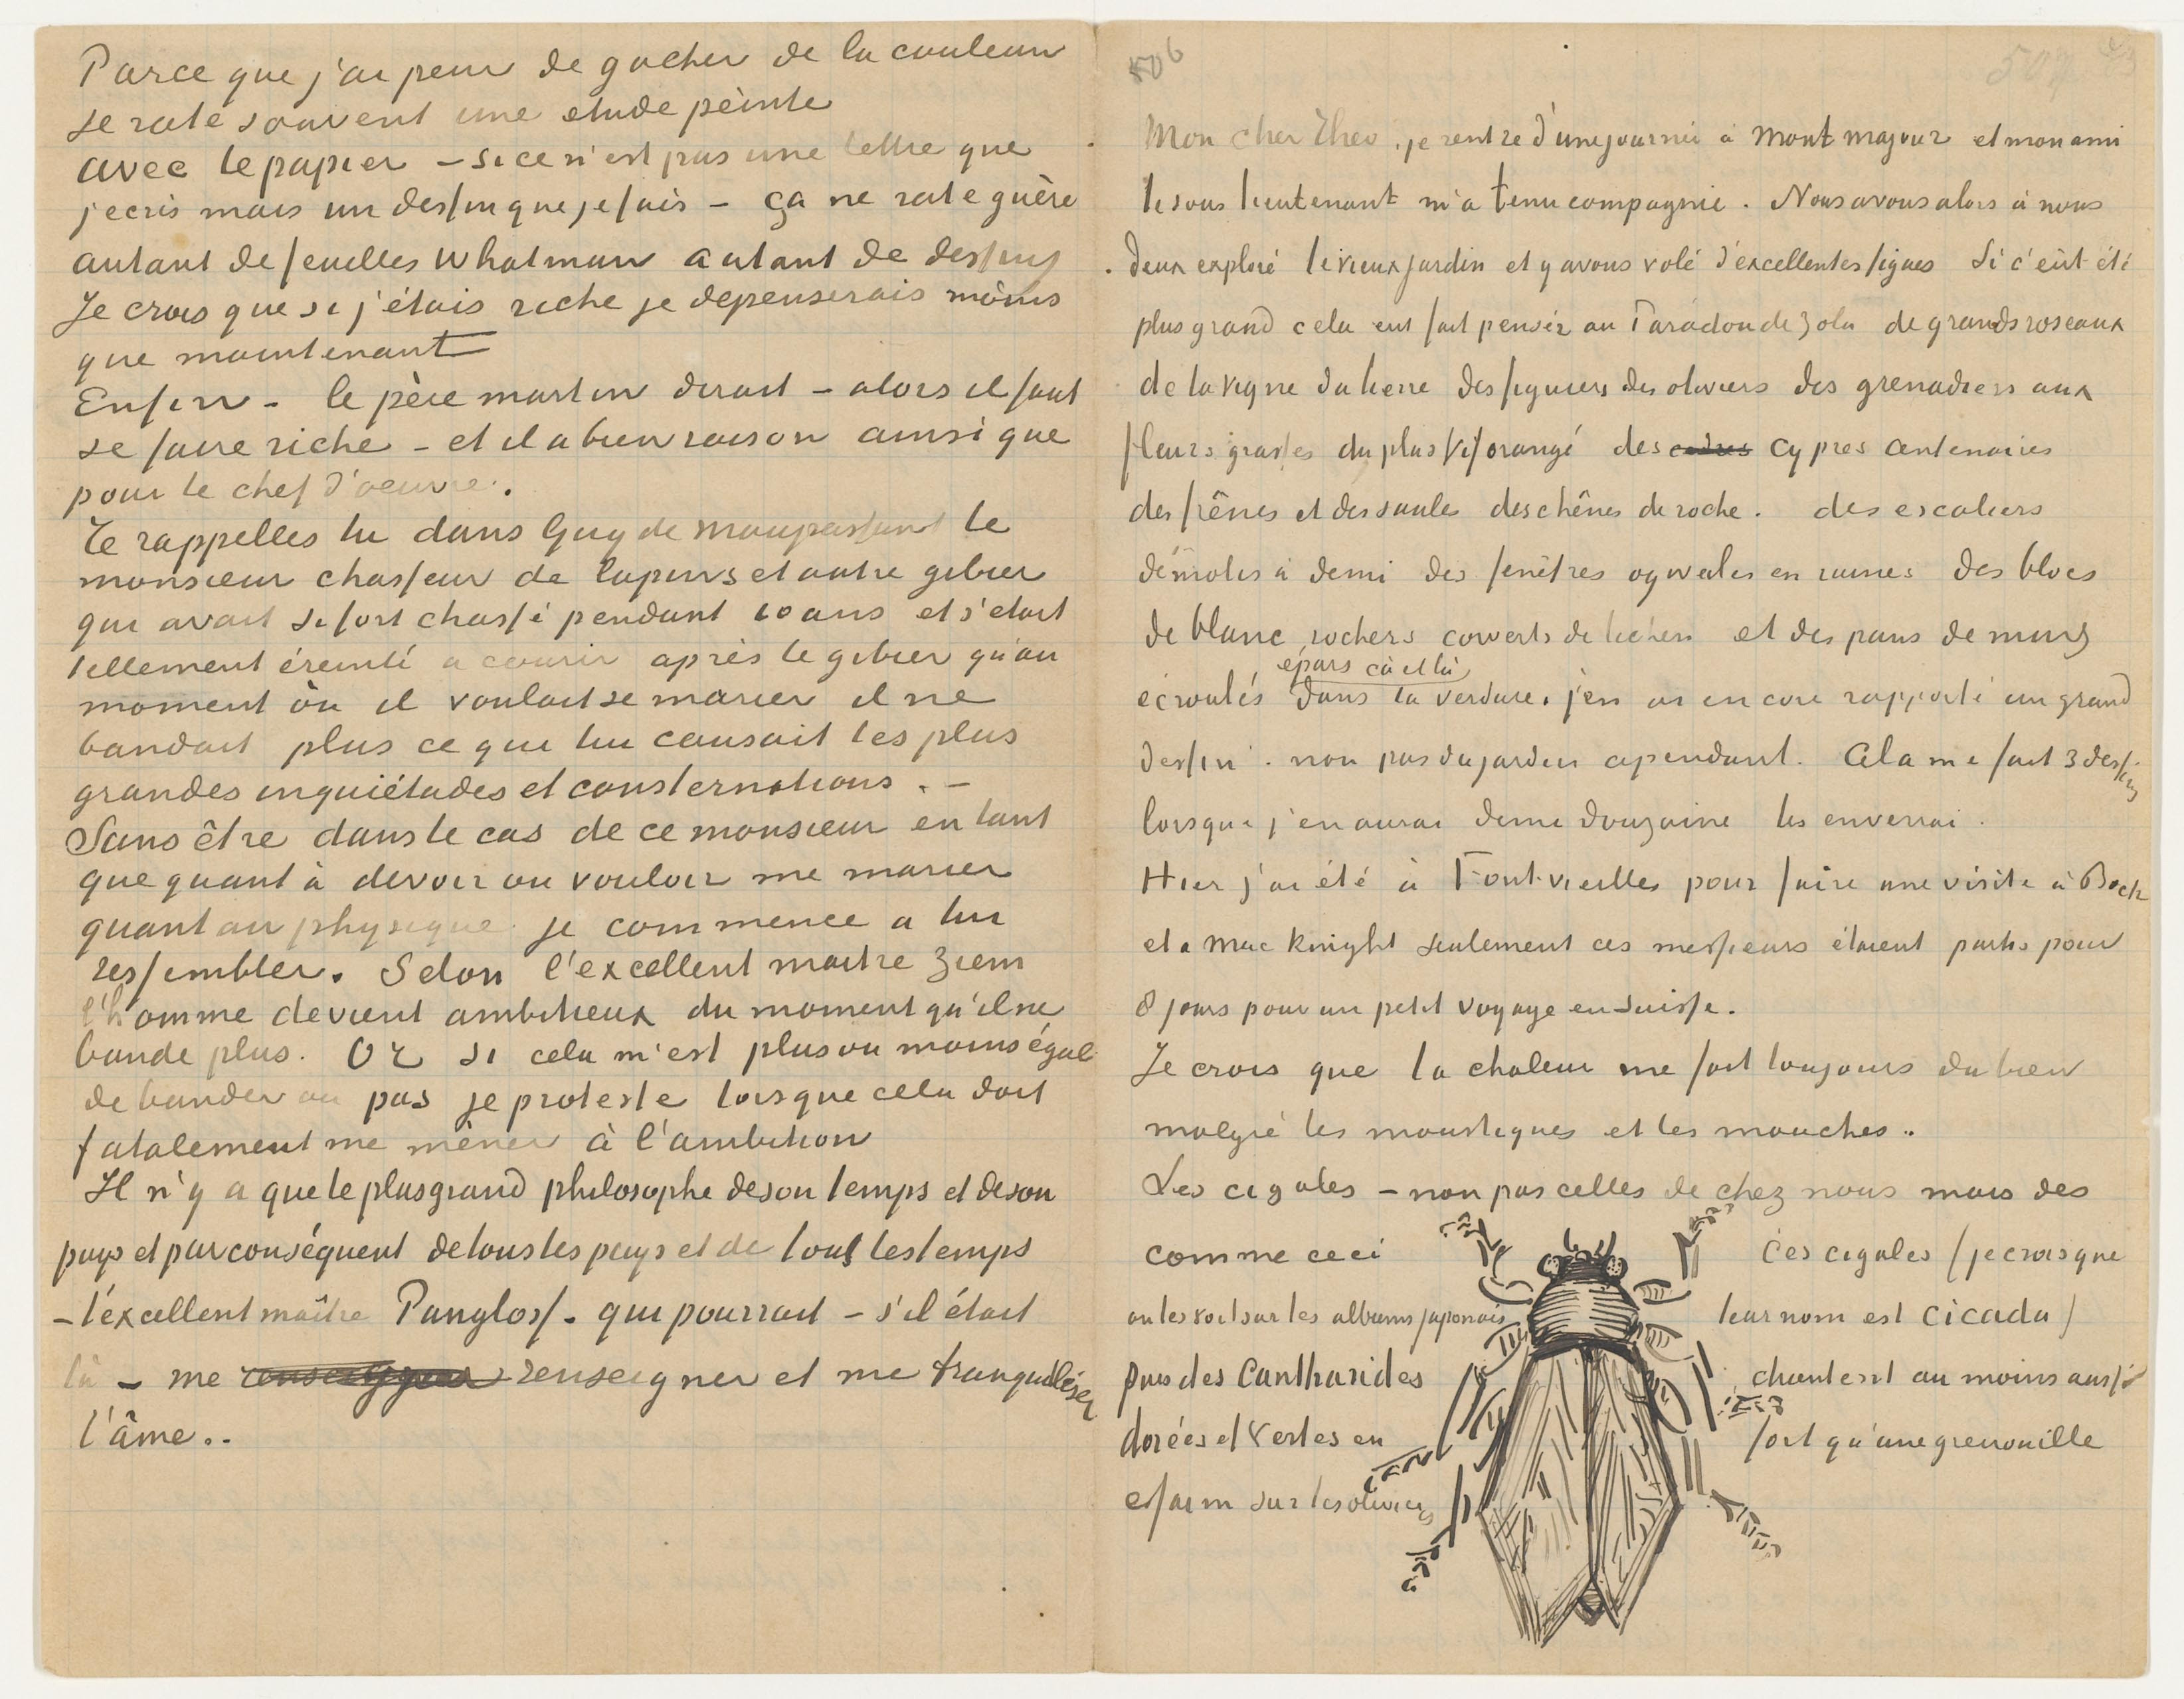 Parce que j'ai peur de gacher de la couleur
je rate souvent une etude peinte
avec le papier – si ce n'est pas une lettre que
j'ecris mais un dessin que je fais – ça ne rate guère
autant de feuilles Whatman autant de dessins
Je crois que si j'étais riche je depenserais moins
que maintenant
Enfin – le père martin dirait – alors il faut
se faire riche – et il a bien raison ainsi que
pour le chef d'oeuvre.
Te rappelles tu dans Guy de Maupassant le
monsieur chasseur de lapins et autre gibier
qui avait si fort chassé pendant 10 ans et s'etait
tellement éreinté a courir après le gibier qu'au
moment où il voulait se marier il ne
bandait plus ce qui lui causait les plus
grandes inquiétudes et consternations. –
Sans être dans le cas de ce monsieur en tant
que quant à devoir ou vouloir me marier
quant au physique je commence a lui
ressembler. Selon l'excellent maitre Ziem
l'homme devient ambitieux du moment qu'il ne
bande plus. Or si cela m'est plus ou moins égal
de bander ou pas je proteste lorsque cela doit
fatalement me mèner à l'ambition
Il n'y a que le plus grand philosophe de son temps et de son
pays et par conséquent de tous les pays et de tous les temps
– l'éxcellent maître Pangloss – qui pourrait – s'il était
là – me renseigner et me tranquiliser
l'âme..
506
507
Mon cher Theo, je rentre d'une journée à Mont majour et mon ami
le sous lieutenant m'a tenu compagnie. Nous avons alors à nous
deux exploré le vieux jardin et y avons volé d'excellentes figues Si c'eût été
plus grand cela eut fait penser au Paradou de Zola de grands roseaux
de la vigne du lierre des figuiers des oliviers des grenadiers aux
fleurs grasses du plus vif orangé des cedres cypres centenaires
des frênes et des saules des chênes de roche. des escaliers
démolis à demi des fenêtres ogivales en ruines des blocs
de blanc rochers couverts de lichen et des pans de murs
épars çà et là
écroulés dans la verdure. j'en ai encore rapporté un grand
dessin. non pas du jardin cependant. Cela me fait 3 dessins
lorsque j'en aurai demi douzaine les enverrai.
Hier j'ai été à Fontvieilles pour faire une visite à Bock
et a Mac Knight seulement ces messieurs étaient partis pour
8 jours pour un petit voyage en Suisse.
Je crois que la chaleur me fait toujours du bien
malgré les moustiques et les mouches.
Les cigales – non pas celles de chez nous mais des
comme ceci
on les voit sur les albums japonais
puis des Cantharides
dorées et vertes en
essaim sur les oliviers
Ces cigales (je crois que
leur nom est cicada)
chantent au moins aussi
fort qu'une grenouille